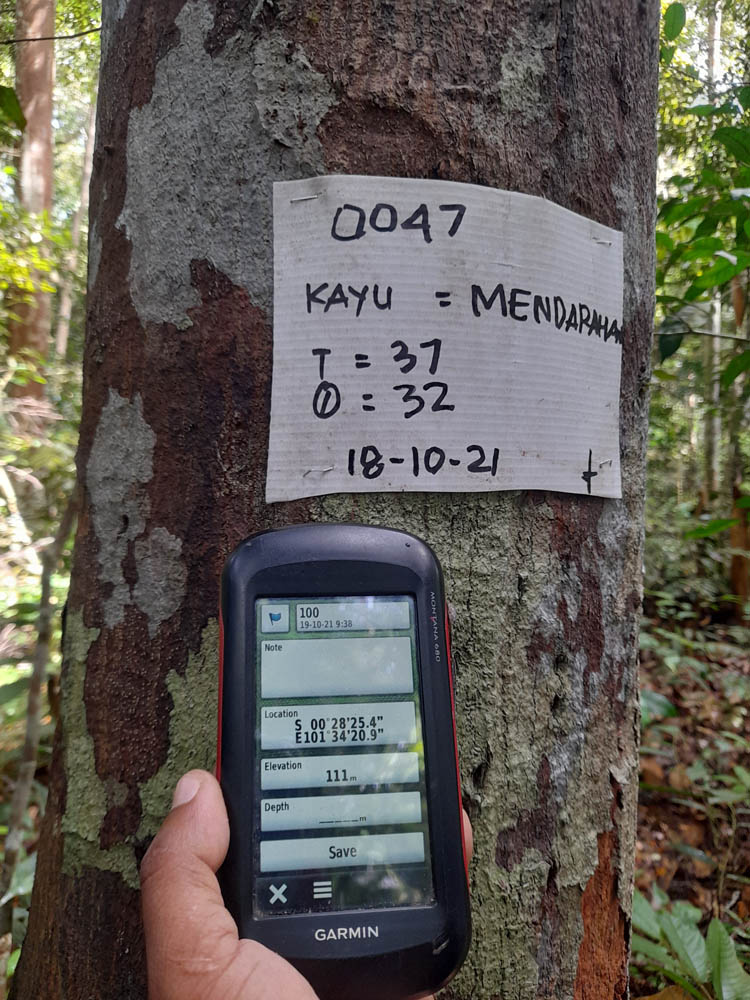 0047
KAYU = MENDARAHAN
T = 37
Ⓘ = 32
18-10-21
MONTANA 680
100
19-10-21 9:38
Note
Location
S 00°28'25.4"
E101°34'20.9"
Elevation
111m
Depth
_____m
Save
GARMIN